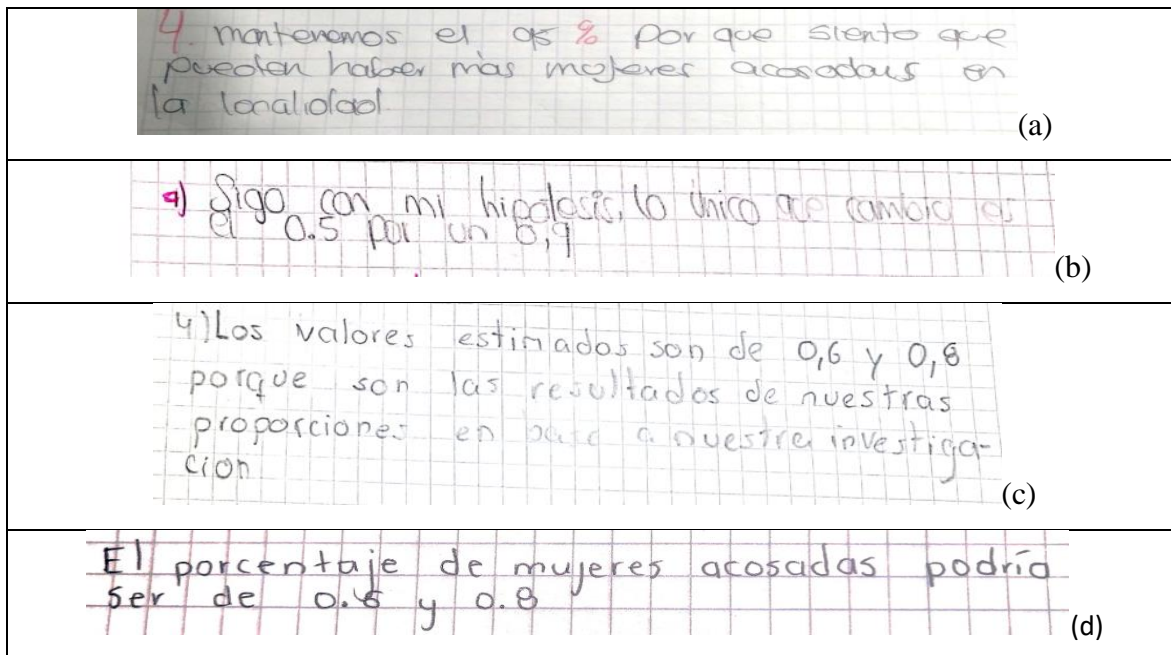 4. mantenemos el 95 % por que siento que
pueden haber más mujeres acosadas en
la localidad
(a)
4) Sigo con mi hipotesis, lo único que cambio es
el 0.5 por un 0,9
(b)
4) Los valores estimados son de 0,6 y 0,8
porque son las resultados de nuestras
proporciones en base a nuestra investiga-
cion
(c)
El porcentaje de mujeres acosadas podría
ser de y 0.8
(d)